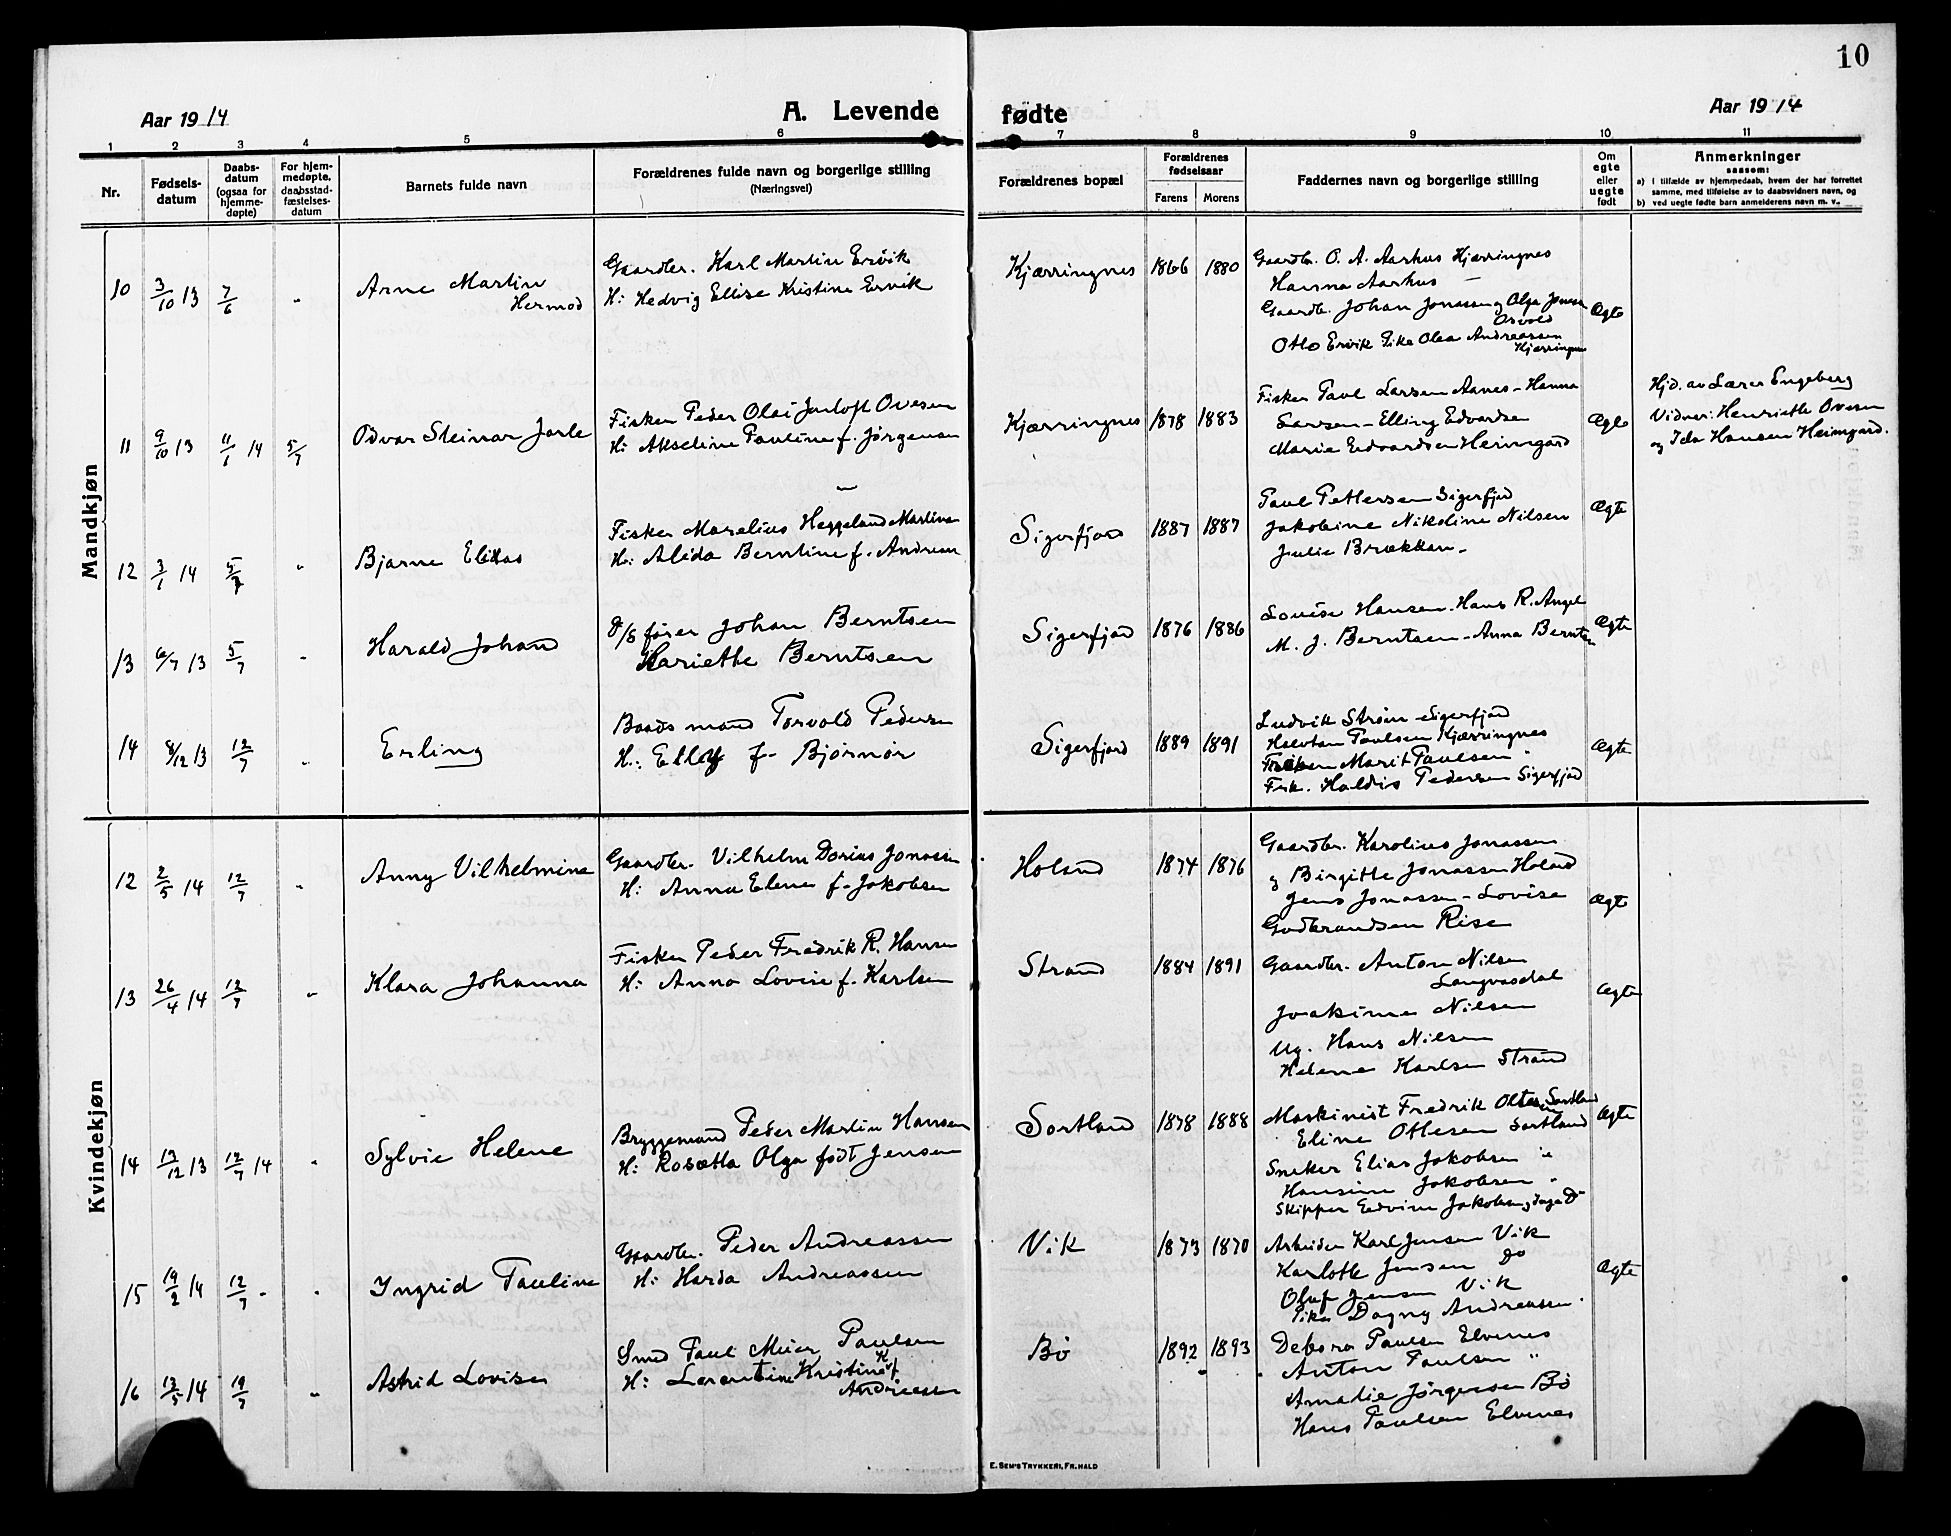 10
Aar 1914
A. Levende fødte
Aar 1914
1 2 3 4 5 6 7 8 9 10 11
Nr.
Fødsels-
datum
Daabs-
datum
(ogsaa for
hjemme-
døpte)
For hjem-
medøpte,
daabsstad-
fæstelses-
datum
Barnets fulde navn
Forældrenes fulde navn og borgerlige stilling
(Næringsvei)
Forældrenes bopæl
Forældrenes
fødselsaar
Farens Morens
Faddernes navn og borgerlige stilling
Om
egte
eller
uegte
født
Anmerkninger
saasom:
a) i tilfælde av hjemmedaab, hvem der har forrettet
samme, med tilføielse av to daabsvidners navn, og
b) ved uegte fødte barn anmelderens navn m. v.
Mandkjøn
10 3/10 13 7/6 "
Arne Martin
Hermod
Gaardbr. Karl Martin Ervik
H: Hedvig Elise Kristine Ervik
Kjærringnes 1866 1880
Gaardbr. O. A. Aarhus Kjærringnes
Hanna Aarhus —
Gaardb. Johan Jonassen og Olga Jonsen
Osvold
Otto Ervik Pike Olea Andreassen
Kjærringnes
Ægte
11 9/10 13 11/1 14 5/7
Odvar Steinar Jarle
Fisker Peder Olai Jentoft Ovesen
H: Akseline Pauline f. Jørgensen
Kjærringnes 1878 1883
Fisker Paul Larsen Aanes - Hanna
Larsen - Elling Edvardsen
Marie Edvardsen Heimgard
Ægte
Hjd. av Lærer Engeberg
Vidner: Henriette Ovesen
og Ida Hansen Heimgard.
12 3/1 14 5/7 "
Bjarne Elias
Fisker Marelius Heggelund Martinsen
H: Alida Berntine f. Andreassen
Sigerfjord 1887 1887
Paul Pettersen Sigerfjord
Jakobine Nikoline Nilsen
Julie Brækkan -
Ægte
13 6/7 13 5/7 "
Harald Johan
D/S fører Johan Berntsen
Hariette Berntsen
Sigerfjord 1876 1886
Louise Hansen. Hans R. Angel
M. J. Berntsen - Anna Berntsen
Ægte
14 8/12 13 12/7 "
Erling
Baadsmand Torvald Pedersen
H: Elly f. Bjørnør
Sigerfjord 1889 1891
Ludvik Strøm Sigerfjord
Halvdan Paulsen Kjærringnes
Frøken Marit Paulsen "
Frk. Haldis Pedersen Sigerfjord
Ægte
Kvindekjøn
12 2/5 14 12/7 "
Anny Vilhelmine
Gaardbr. Vilhelm Dorius Jonassen
H: Anna Elene f. Jakobsen
Holand 1874 1876
Gaardbr. Karolius Jonassen
og Birgitte Jonassen Holand
Jens Jonassen - Lovise
Gudbrandsen Rise
Ægte
13 26/4 14 12/7 "
Klara Johanna
Fisker Peder Fredrik R. Hansen
H: Anna Lovise f. Karlsen
Strand 1884 1891
Gaardbr. Anton Nilsen
Langvasdal
Joakime Nilsen
Ug. Hans Nilsen
Helene Karlsen Strand
Ægte
14 13/12 13 12/7 14 "
Sylvie Helene
Bryggemand Peder Martin Hansen
H: Rosætta Olga født Jensen
Sortland 1878 1888
Maskinist Fredrik Olsen Sortland
Eline Ottesen Sortland
Snekker Elias Jakobsen "
Hansine Jakobsen "
Skipper Edvin Jakobsen
Ægte
15 19/2 14 12/7 - "
Ingrid Pauline
Gaardbr. Peder Andreassen
H: Harda Andreassen
Vik 1873 1870
Arbeider Karl Jensen Vik
Karlotte Jensen Do
Oluf Jensen Vik
Pike Dagny Andreassen.
Ægte
16 13/5 14 19/7 "
Astrid Lovise
Smed Paul Meier Paulsen
H: Lorentine Kristine K f.
Andreassen
Bø 1892 1893
Debora Paulsen Elvenes
Anton Paulsen "
Amalie Jørgensen Bø
Hans Paulsen Elvenes
E. SEM'S TRYKKERI, FR.HALD